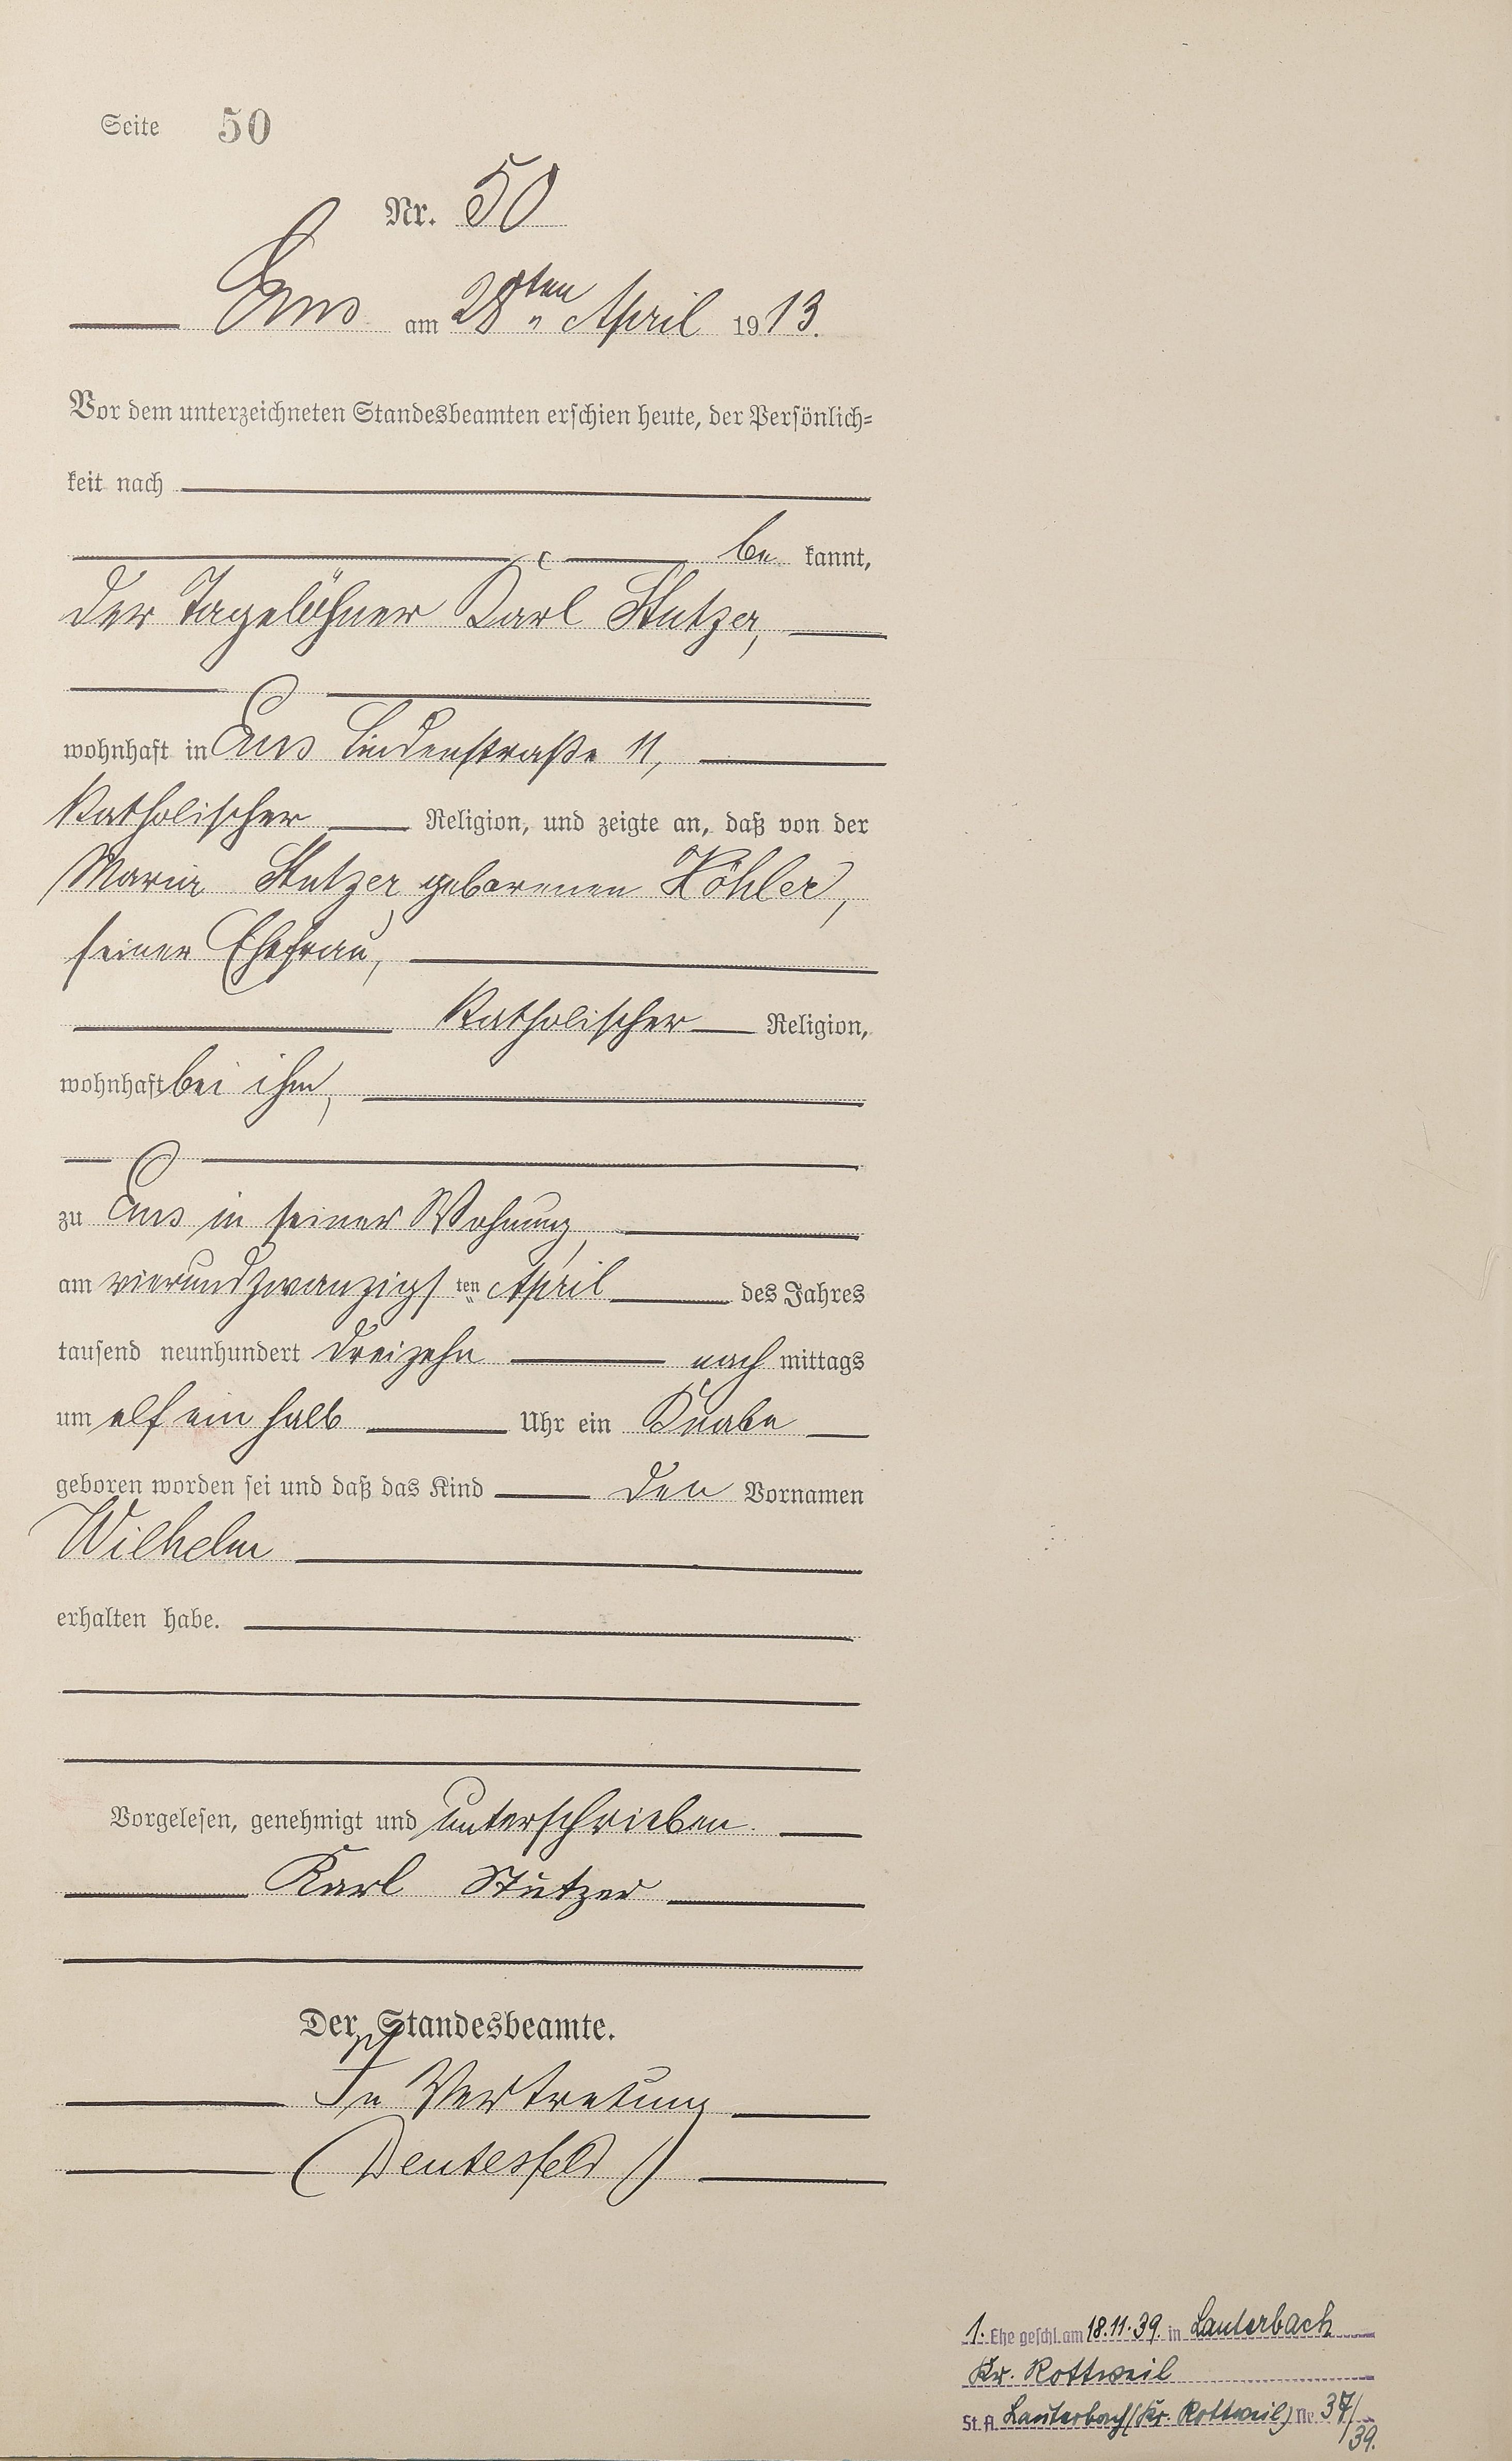 Seite 50
Nr. 50
Ems am 28ten April 1913.
Vor dem unterzeichneten Standesbeamten erschien heute, der Persönlich=
keit nach
be kannt,
der Tagelöhner Karl Stutzer,
wohnhaft in Ems Lindenstraße 11,
katholischer Religion, und zeigte an, daß von der
Maria Stutzer geborenen Köhler,
seiner Ehefrau,
katholischer Religion,
wohnhaft bei ihm,
zu Ems in seiner Wohnung,
am vierundzwanzigsten April des Jahres
tausend neunhundert dreizehn nach mittags
um elf ein halb Uhr ein Knabe
geboren worden sei und daß das Kind den Vornamen
Wilhelm
erhalten habe.
Vorgelesen, genehmigt und unterschrieben.
Karl Stutzer
Der Standesbeamte.
In Vertretung
(Deutesfeld)
1. Ehe geschl. am 18.11.39. in Lauterbach
Kr. Rottweil
St. A. Lauterbach (Kr. Rottweil) Nr. 37/
39.